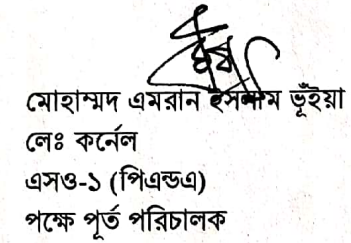 মোহাম্মদ এমরান ইসলাম ভূঁইয়া
লেঃ কর্নেল
এসও-১ (পিএন্ডএ)
পক্ষে পূর্ত পরিচালক